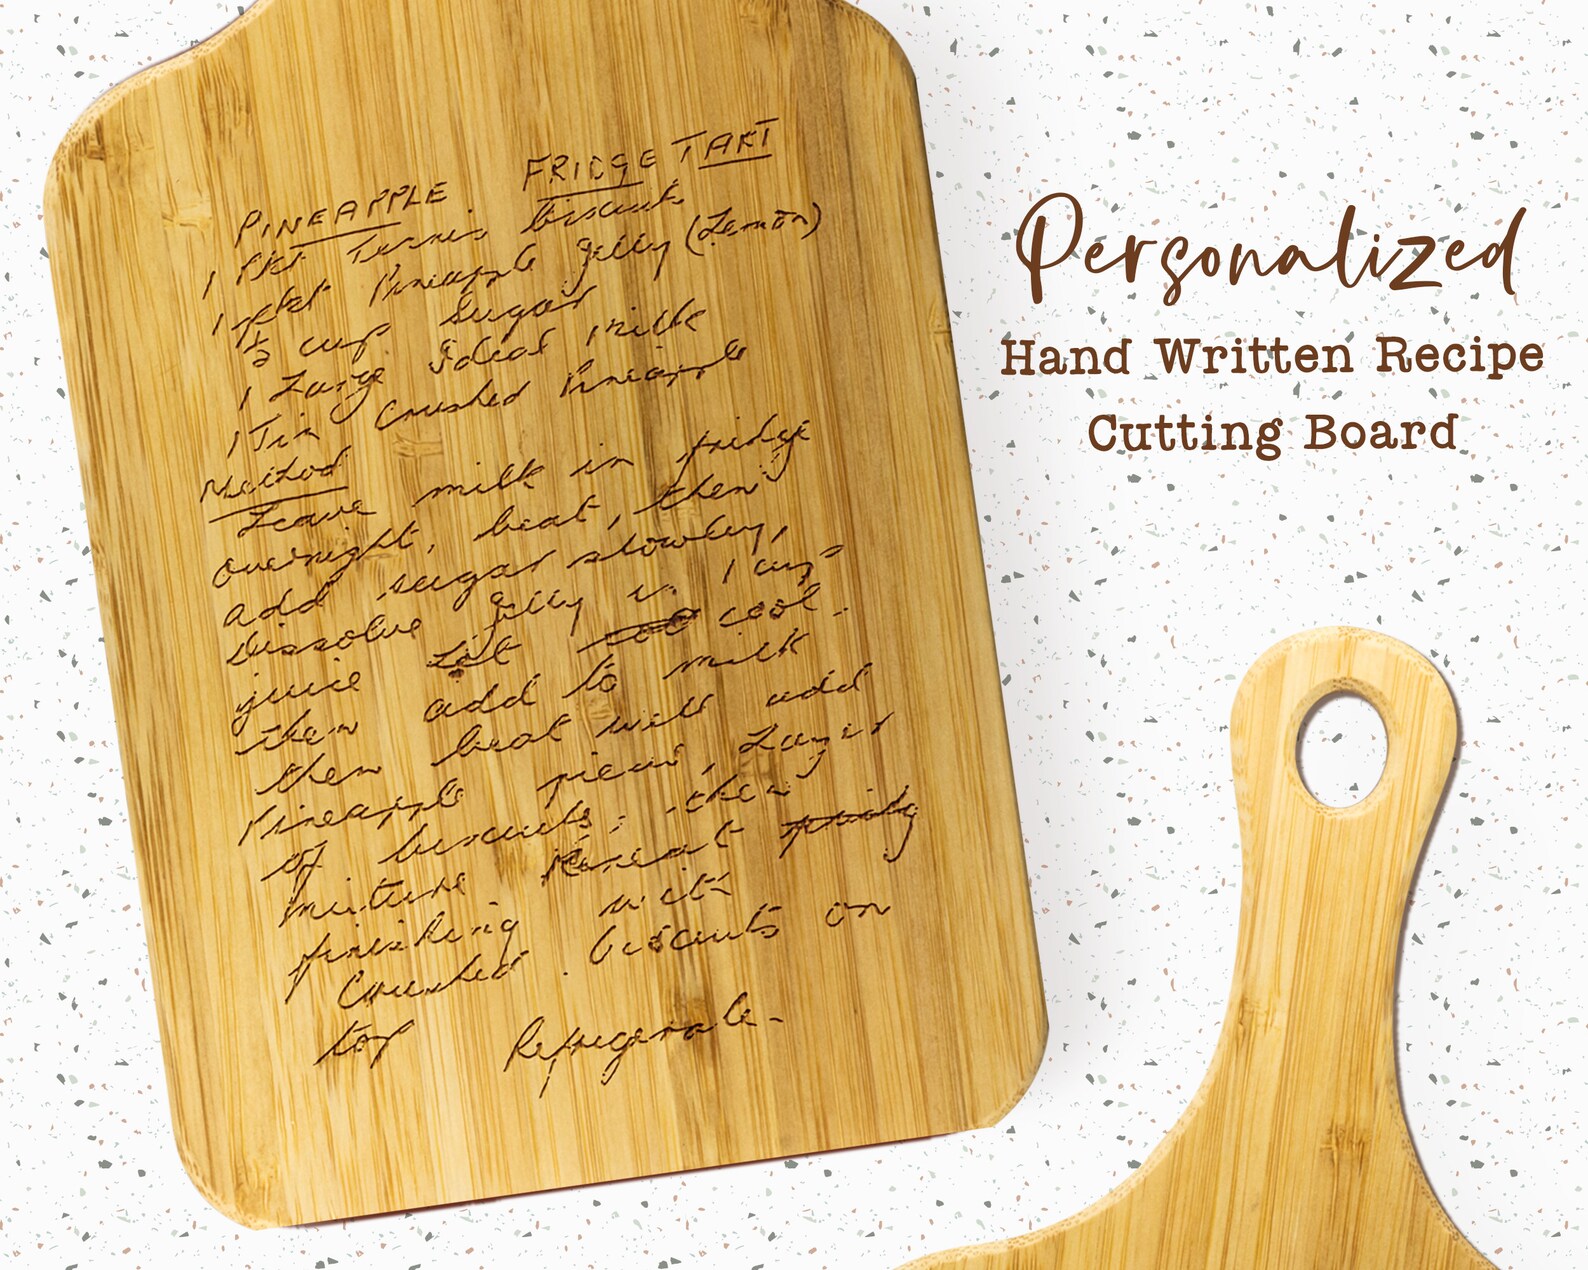 PINEAPPLE FRIDGE TART
1 Pkt Tennis Biscuits
1 pkt Pineapple Jelly (Lemon)
½ cup sugar
1 Large Ideal Milk
1 Tin Crushed Pineapple
Method
Leave milk in fridge
overnight, beat, then
add sugar slowly,
Dissolve Jelly in 1 cup
juice Let cool.
then add to milk
then beat well add
Pineapple pieces, Layer
of biscuits, then
mixture Repeat
finishing with
Crushed biscuits on
top Refrigerate-
Personalized
Hand Written Recipe
Cutting Board